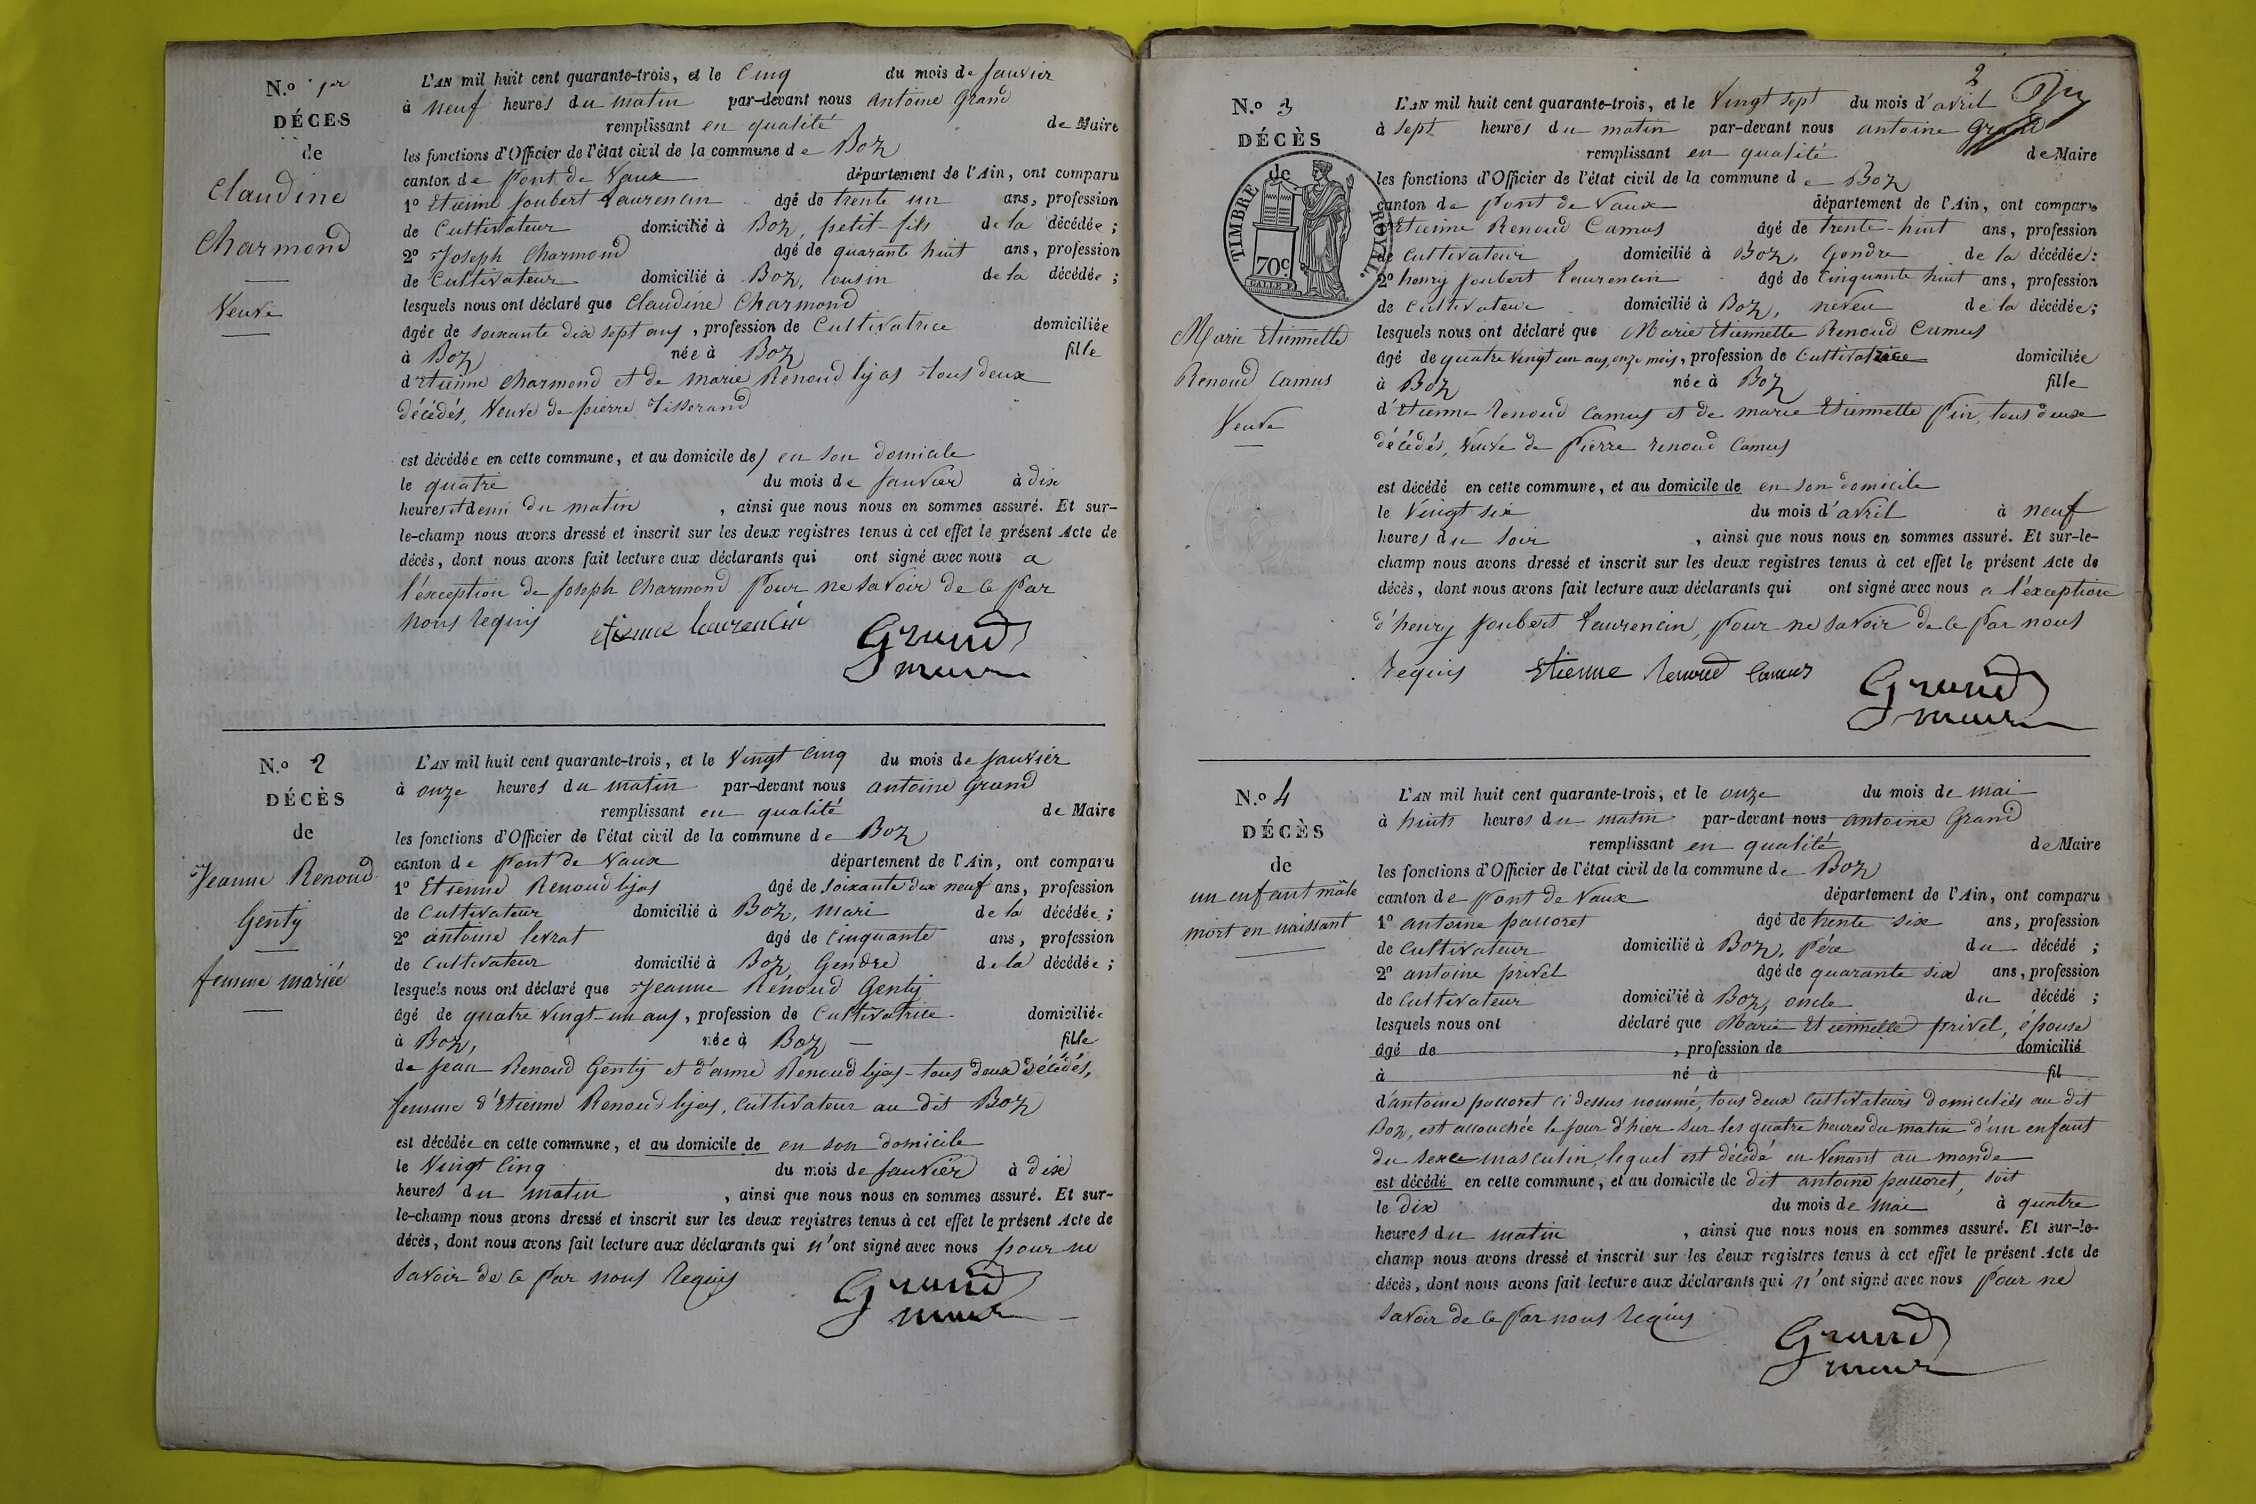 N.º 1er
DÉCÈS
de
Claudine
Charmond
Veuve
L'AN mil huit cent quarante-trois, et le Cinq du mois de Janvier
à neuf heures du matin par-devant nous antoine Grand
remplissant en qualité de Maire
les fonctions d'Officier de l'état civil de la commune de Boz
canton de Pont de Vaux département de l'Ain, ont comparu
1º Etienne Joubert Laurencin âgé de trente un ans, profession
de Cultivateur domicilié à Boz, petit-fils de la décédée ;
2º Joseph Charmond âgé de quarante huit ans, profession
de Cultivateur domicilié à Boz, cousin de la décédée ;
lesquels nous ont déclaré que Claudine Charmond
âgée de soixante dix sept ans, profession de Cultivatrice domiciliée
à Boz née à Boz fille
d'Etienne Charmond et de marie Renoud lyas tous deux
décédés, Veuve de pierre Tisserand
est décédée en cette commune, et au domicile de en son domicile
le quatre du mois de Janvier à dix
heures et demi du matin, ainsi que nous nous en sommes assuré. Et sur-
le-champ nous avons dressé et inscrit sur les deux registres tenus à cet effet le présent Acte de
décès, dont nous avons fait lecture aux déclarants qui ont signé avec nous a
l'exception de Joseph Charmond pour ne savoir de ce par
nous requis etienne laurencin Grand
maire
N.º 2
DÉCÈS
de
Jeanne Renoud
Genty
femme mariée
L'AN mil huit cent quarante-trois, et le Vingt cinq du mois de Janvier
à onze heures du matin par-devant nous antoine Grand
remplissant en qualité de Maire
les fonctions d'Officier de l'état civil de la commune de Boz
canton de Pont de Vaux département de l'Ain, ont comparu
1º Etienne Renoud lyas âgé de soixante dix neuf ans, profession
de Cultivateur domicilié à Boz, mari de la décédée ;
2º antoine levrat âgé de cinquante ans, profession
de Cultivateur domicilié à Boz, Gendre de la décédée ;
lesquels nous ont déclaré que Jeanne Renoud Genty
âgé de quatre vingt-un ans, profession de Cultivatrice domiciliée
à Boz, née à Boz fille
de Jean Renoud Genty et d'anne Renoud lyas tous deux décédés,
femme d'Etienne Renoud lyas, cultivateur au dit Boz
est décédée en cette commune, et au domicile de en son domicile
le Vingt Cinq du mois de Janvier à dix
heures du matin, ainsi que nous nous en sommes assuré. Et sur-
le-champ nous avons dressé et inscrit sur les deux registres tenus à cet effet le présent Acte de
décès, dont nous avons fait lecture aux déclarants qui n'ont signé avec nous pour ne
savoir de ce par nous requis Grand
maire
2
N.º 3
DÉCÈS
de
TIMBRE ROYAL
70c
Marie Etiennette
Renoud Camus
Veuve
L'AN mil huit cent quarante-trois, et le Vingt sept du mois d'avril
à sept heures du matin par-devant nous antoine Grand
remplissant en qualité de Maire
les fonctions d'Officier de l'état civil de la commune de Boz
canton de Pont de Vaux département de l'Ain, ont comparu
Etienne Renoud Camus âgé de trente-huit ans, profession
de Cultivateur domicilié à Boz, Gendre de la décédée ;
2º henry Joubert Laurencin âgé de Cinquante huit ans, profession
de Cultivateur domicilié à Boz, neveu de la décédée ;
lesquels nous ont déclaré que Marie Etiennette Renoud Camus
âgé de quatre vingt un ans, onze mois, profession de Cultivatrice domiciliée
à Boz née à Boz fille
d'Etienne Renoud Camus et de marie Etiennette Pin, tous deux
décédés, Veuve de Pierre renoud Camus
est décédé en cette commune, et au domicile de en son domicile
le Vingt six du mois d'avril à neuf
heures du soir, ainsi que nous nous en sommes assuré. Et sur-le-
champ nous avons dressé et inscrit sur les deux registres tenus à cet effet le présent Acte de
décès, dont nous avons fait lecture aux déclarants qui ont signé avec nous a l'exception
d'henry Joubert Laurencin, pour ne savoir de ce par nous
requis Etienne Renoud Camus Grand
maire
N.º 4
DÉCÈS
de
un enfant mâle
mort en naissant
L'AN mil huit cent quarante-trois, et le onze du mois de mai
à huits heures du matin par-devant nous antoine Grand
remplissant en qualité de Maire
les fonctions d'Officier de l'état civil de la commune de Boz
canton de Pont de Vaux département de l'Ain, ont comparu
1º antoine paccoret âgé de trente six ans, profession
de Cultivateur domicilié à Boz, Père du décédé ;
2º antoine privel âgé de quarante six ans, profession
de Cultivateur domicilié à Boz, oncle du décédé ;
lesquels nous ont déclaré que Marie Etiennette privel, épouse
âgé de , profession de domicilié
à né à fil
d'antoine paccoret ci dessus nommé, tous deux Cultivateurs domiciliés au dit
Boz, est accouchée le jour d'hier sur les quatre heures du matin d'un enfant
du sexe masculin, lequel est décédé en Venant au monde
est décédé en cette commune, et au domicile de dit antoine paccoret, soit
le dix du mois de mai à quatre
heures du matin, ainsi que nous nous en sommes assuré. Et sur-le-
champ nous avons dressé et inscrit sur les deux registres tenus à cet effet le présent Acte de
décès, dont nous avons fait lecture aux déclarants qui n'ont signé avec nous pour ne
savoir de ce par nous requis Grand
maire